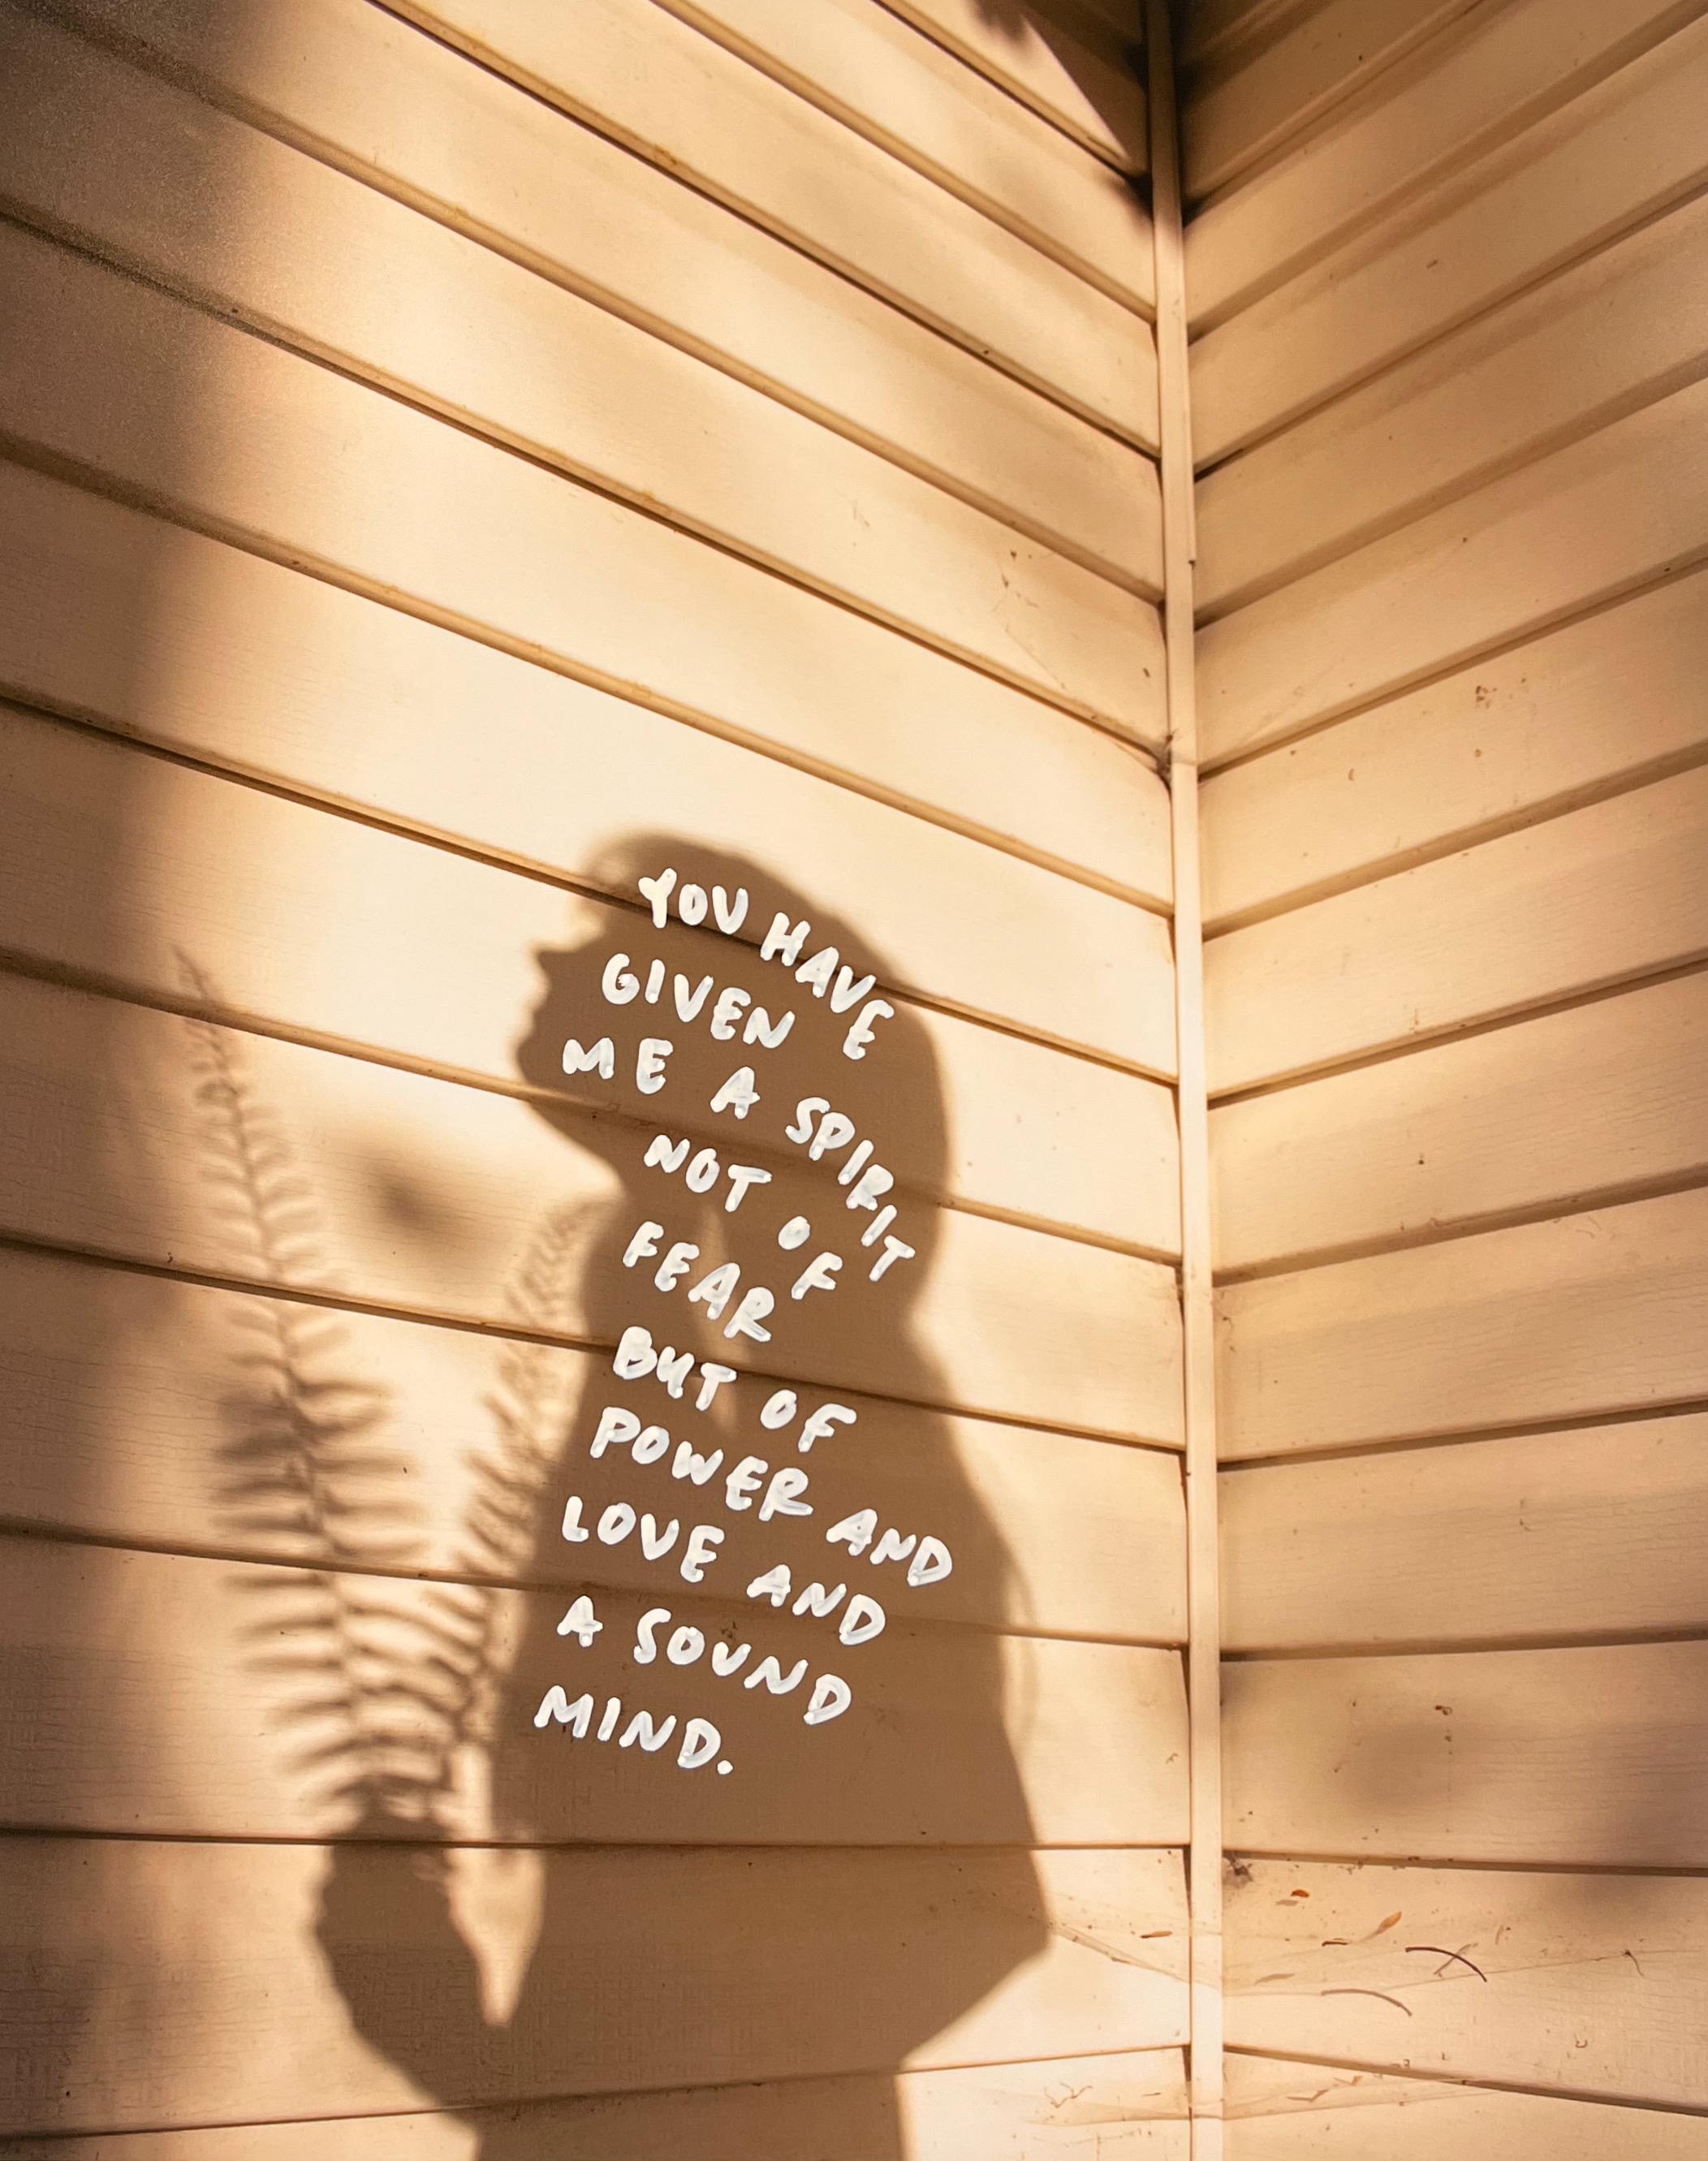 YOU HAVE
GIVEN
ME A SPIRIT
NOT OF
FEAR
BUT OF
POWER AND
LOVE AND
A SOUND
MIND.